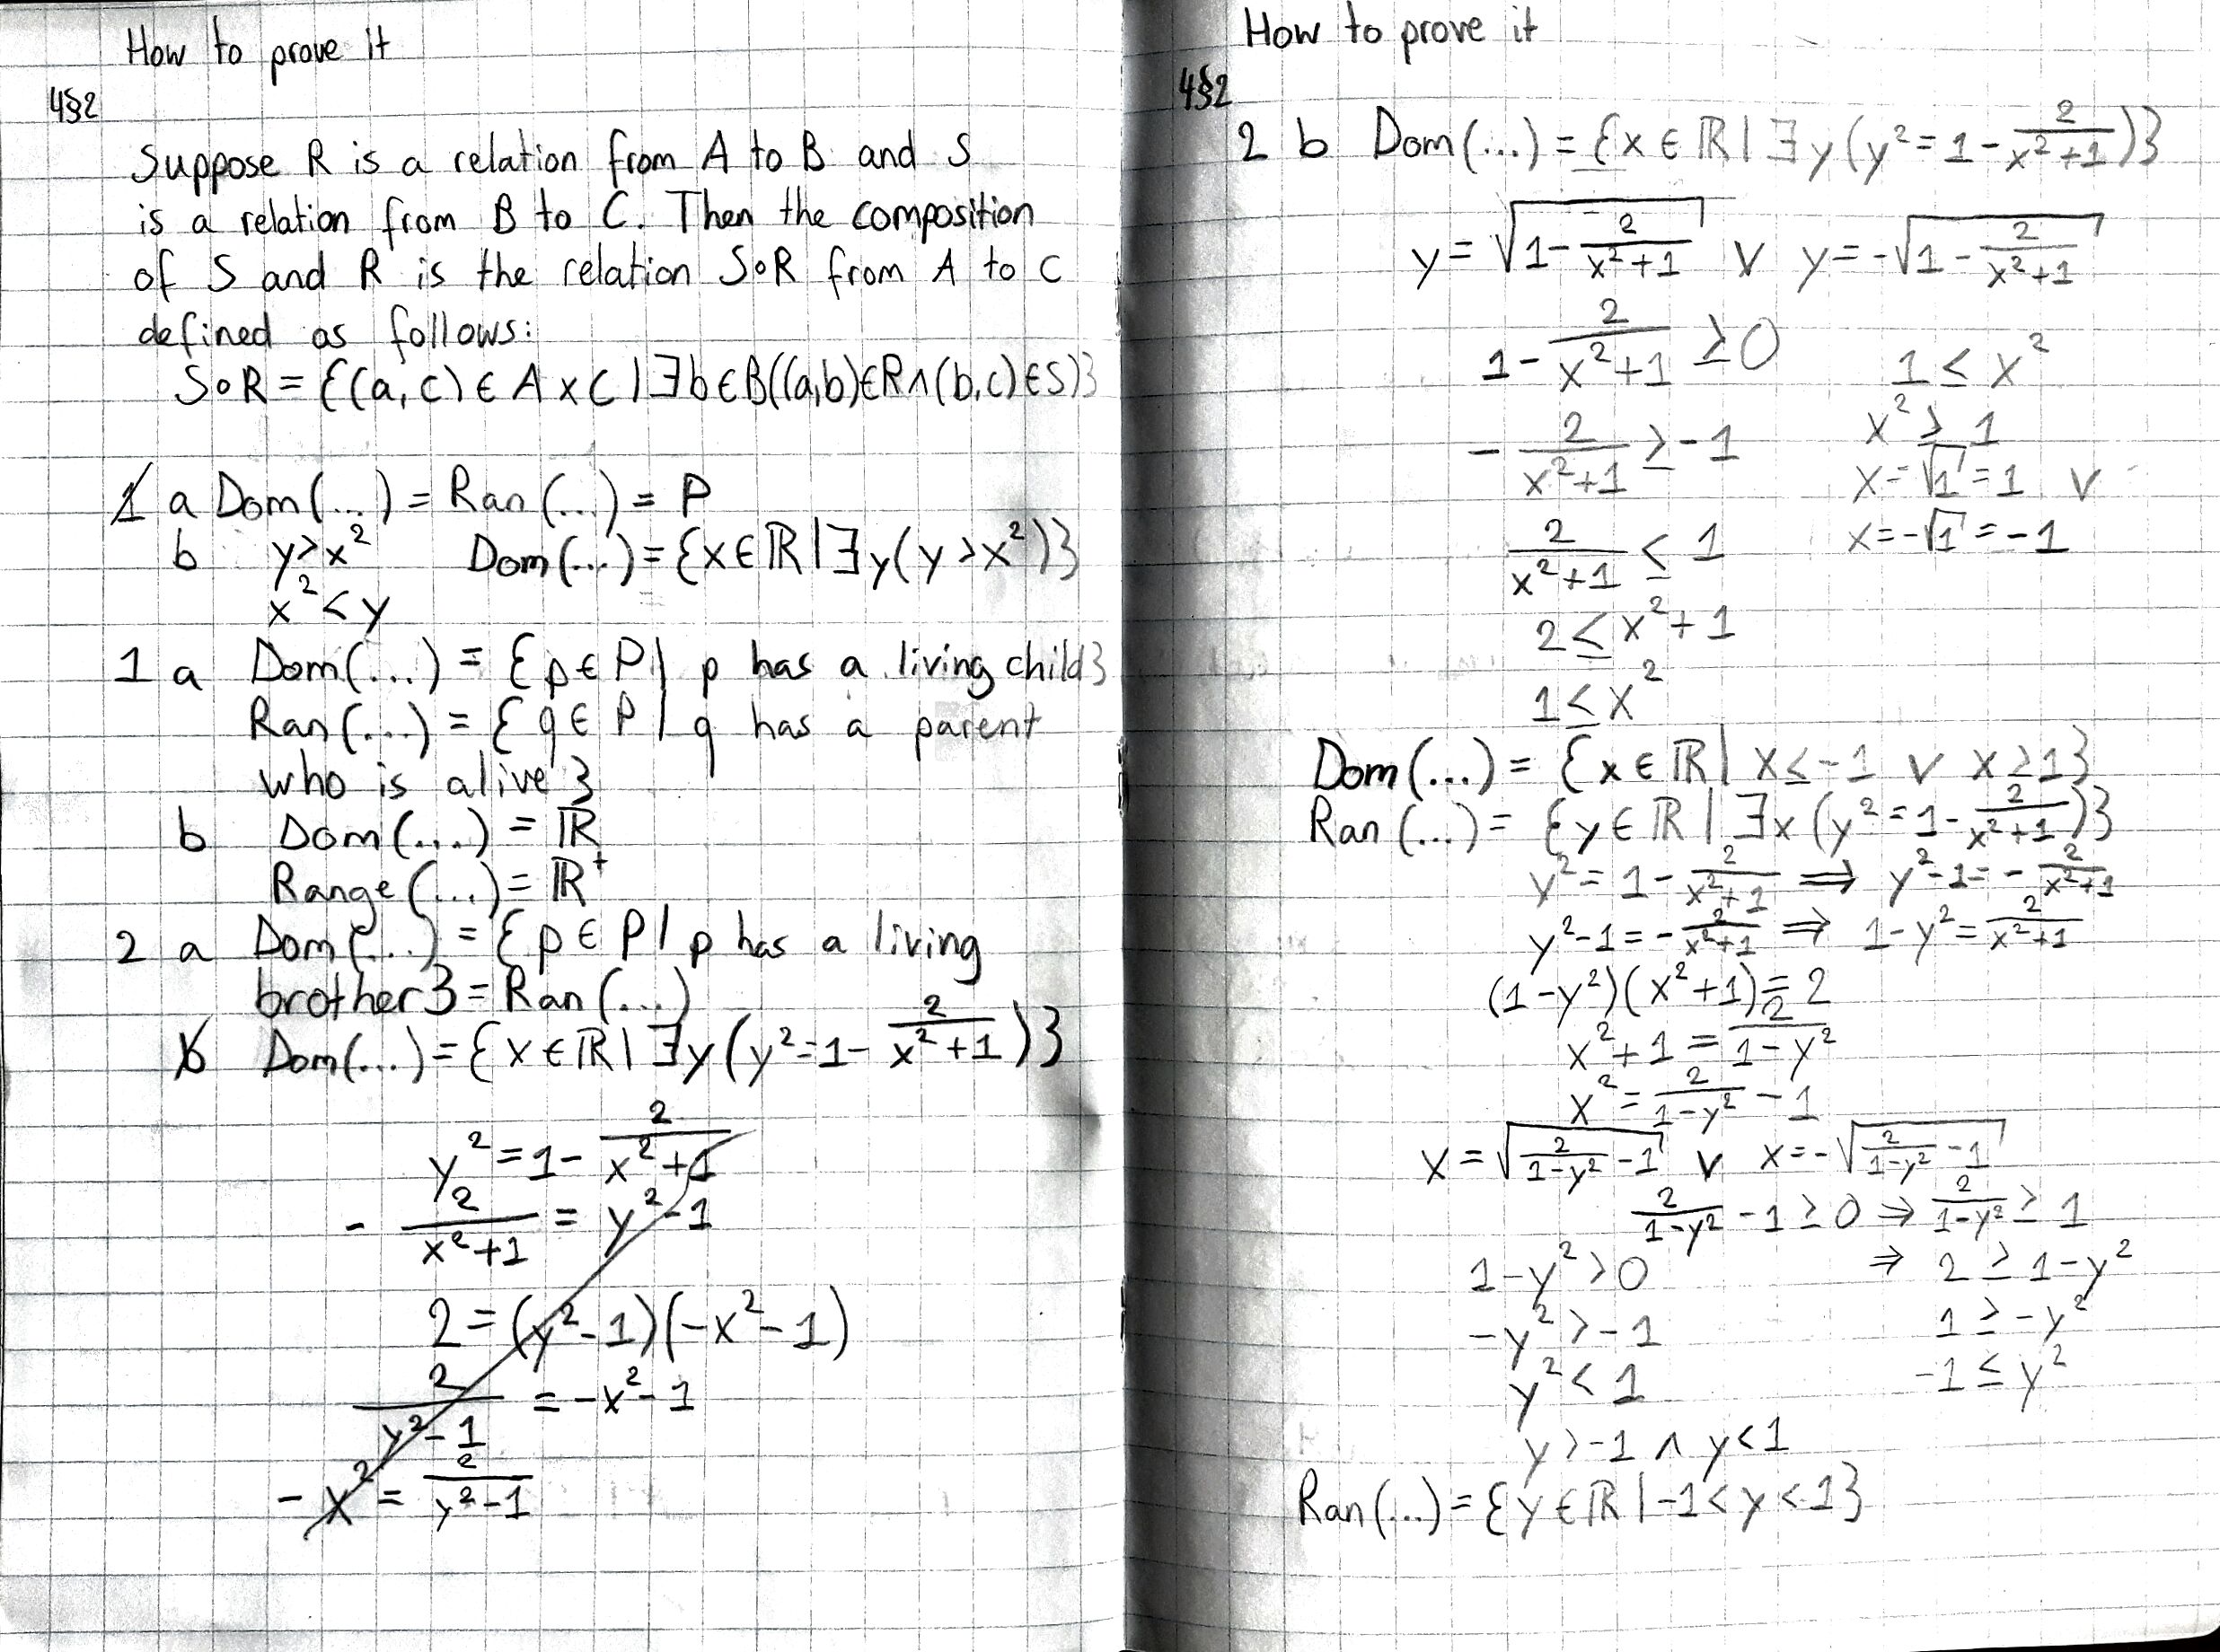 How to prove it
4§2
Suppose R is a relation from A to B and S
is a relation from B to C. Then the composition
of S and R is the relation S∘R from A to C
defined as follows:
S∘R = {(a,c) ∈ A x C | ∃b∈B((a,b)∈R∧(b,c)∈S)}
1 a Dom(...) = Ran(...) = P
b y>x² Dom(...) = {x∈ℝ | ∃y(y>x²)}
x²<y
1 a Dom(...) = {p∈P | p has a living child}
Ran(...) = {q∈P | q has a parent
who is alive}
b Dom(...) = ℝ
Range(...) = ℝ⁺
2 a Dom(...) = {p∈P | p has a living
brother} = Ran(...)
b Dom(...) = {x∈ℝ | ∃y(y²=1-2/(x²+1))}
y²=1-2/(x²+1)
-2/(x²+1) = y²-1
2=(y²-1)(-x²-1)
2/(y²-1) = -x²-1
-x² = 2/(y²-1)
How to prove it
4§2
2 b Dom(...) = {x∈ℝ | ∃y(y²=1-2/(x²+1))}
y=√(1-2/(x²+1)) ∨ y=-√(1-2/(x²+1))
1-2/(x²+1) ≥0 1≤x²
x²≥1
-2/(x²+1) ≥-1 x=√1=1 ∨
2/(x²+1) ≤ 1 x=-√1=-1
2≤x²+1
1≤x²
Dom(...) = {x∈ℝ | x≤-1 ∨ x≥1}
Ran(...) = {y∈ℝ | ∃x(y²=1-2/(x²+1))}
y²=1-2/(x²+1) ⇒ y²-1=-2/(x²+1)
y²-1=-2/(x²+1) ⇒ 1-y²=2/(x²+1)
(1-y²)(x²+1)=2
x²+1=2/(1-y²)
x²=2/(1-y²)-1
x=√(2/(1-y²)-1) ∨ x=-√(2/(1-y²)-1)
2/(1-y²)-1≥0 ⇒ 2/(1-y²)≥1
1-y²>0 ⇒ 2≥1-y²
-y²>-1 1≥-y²
y²<1 -1≤y²
y>-1 ∧ y<1
Ran(...) = {y∈ℝ | -1<y<1}